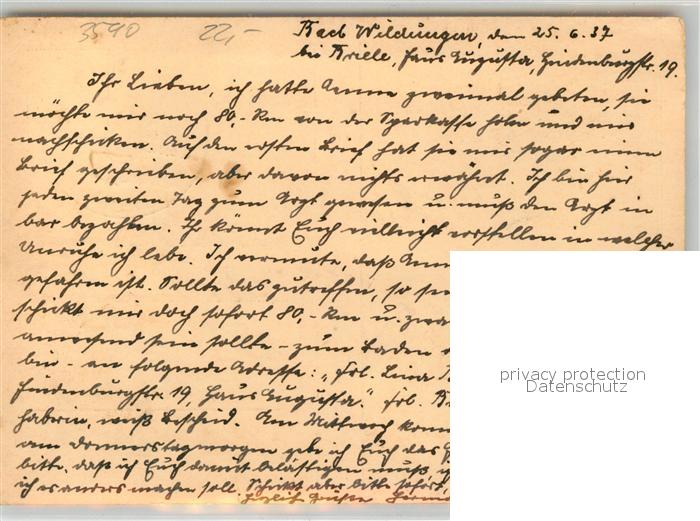 3590 22,-
Bad Wildungen, den 25.6.37
bei Brielle, Haus Augusta, Hindenburgstr. 19.
Ihr Lieben, ich hatte Anne zweimal gebeten, sie
möchte mir noch 80,- Rm von der Sparkasse holen und mir
nachschicken. Auf den ersten Brief hat sie mir sogar einen
Brief geschrieben, aber davon nichts erwähnt. Ich bin hier
jeden zweiten Tag zum Arzt gewesen u. muß den Arzt in
bar bezahlen. Ihr könnt Euch vielleicht vorstellen in welcher
Unruhe ich lebe. Ich vermute, daß
gefahren ist. Sollte das zutreffen, so
schickt mir doch sofort 80,- Rm u.
anwesend sein sollte - zum Baden
bin - an folgende Adresse: "Frl. Lina
Hindenburgstr. 19, Haus Augusta." Frl.
haberin, weiß Bescheid. Am Mittwoch
am Donnerstagmorgen gebe ich Euch das
bitte, daß ich Euch damit belästigen muß,
ich es anders machen soll. Schickt aber bitte sofort,
Herzliche Grüße
privacy protection
Datenschutz